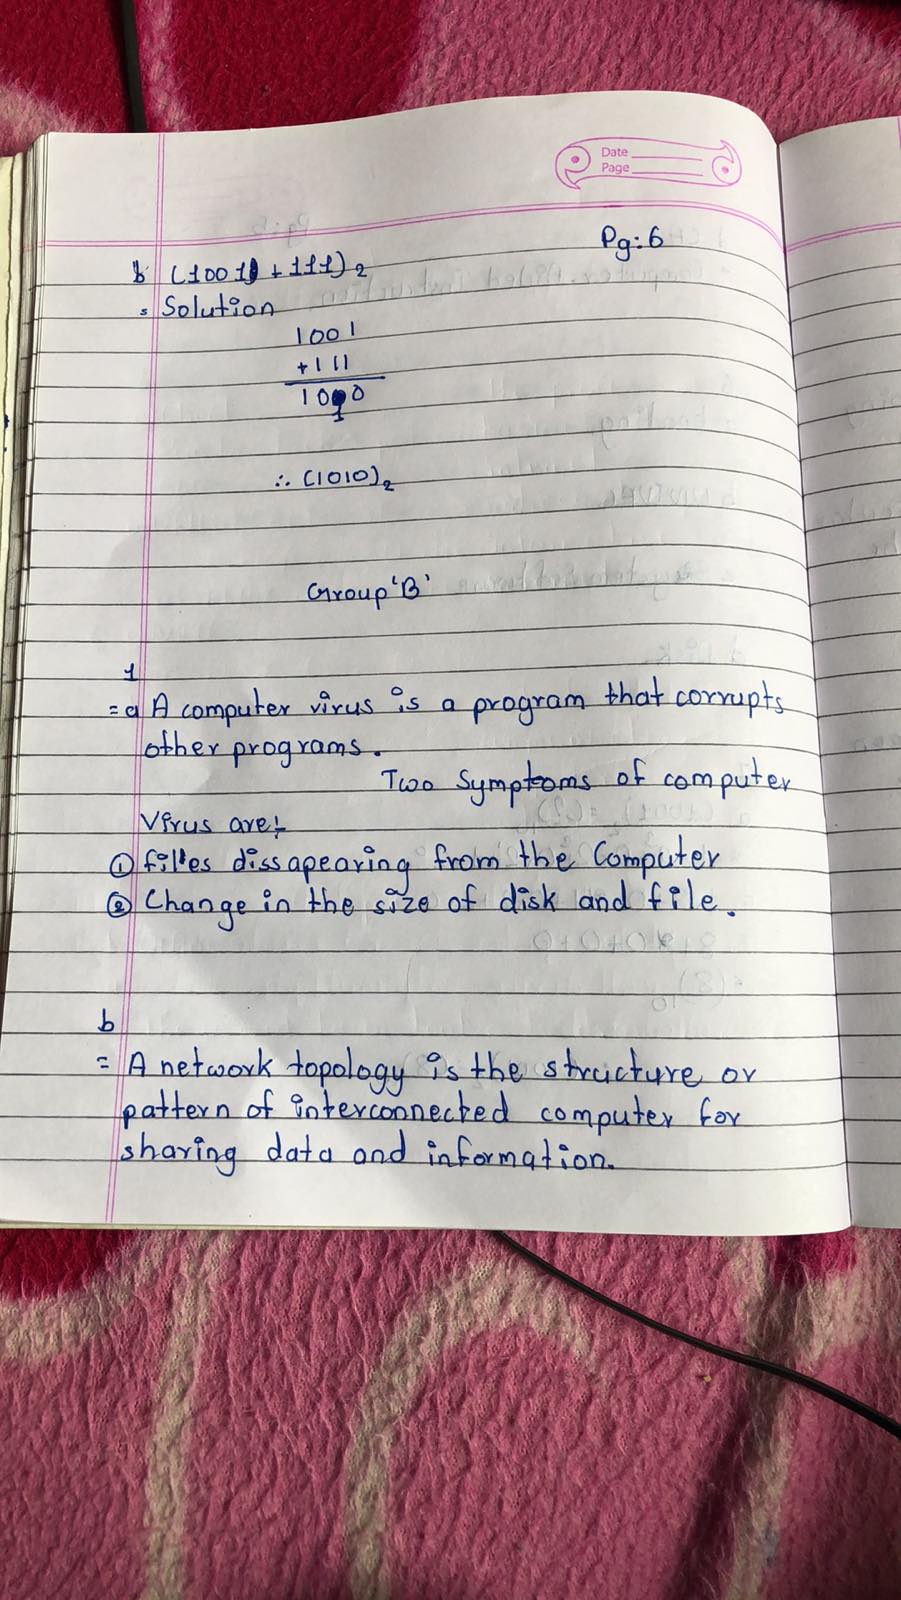 Date
Page
Pg:6
b (1001 + 111)2
= Solution
1001
+111
1010
1
∴ (1010)2
Group 'B'
1
= a A computer virus is a program that corrupts
other programs.
Two Symptoms of computer
Virus are:-
① files dissapearing from the Computer
② Change in the size of disk and file.
b
= A network topology is the structure or
pattern of interconnected computer for
sharing data and information.